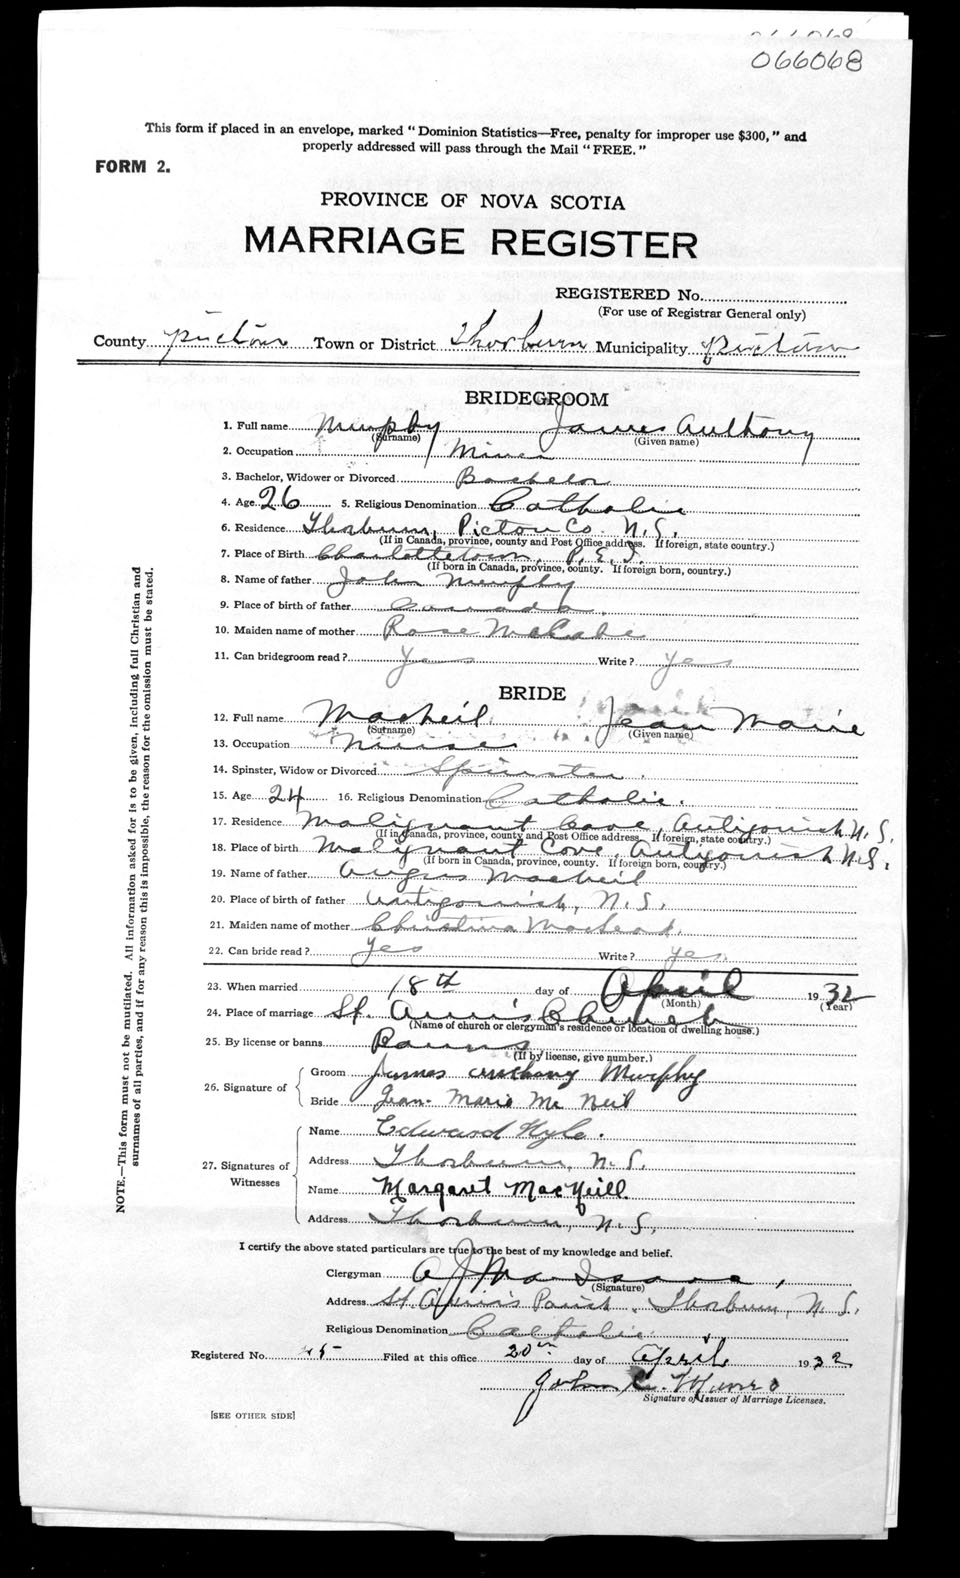 066068
This form if placed in an envelope, marked "Dominion Statistics—Free, penalty for improper use $300," and
properly addressed will pass through the Mail "FREE."
FORM 2.
PROVINCE OF NOVA SCOTIA
MARRIAGE REGISTER
REGISTERED No.
(For use of Registrar General only)
County Pictou Town or District Thorburn Municipality Pictou
BRIDEGROOM
1. Full name Murphy James Anthony
(Surname) (Given name)
2. Occupation Miner
3. Bachelor, Widower or Divorced Bachelor
4. Age 26 5. Religious Denomination Catholic
6. Residence Thorburn, Pictou Co. N.S.
(If in Canada, province, county and Post Office address. If foreign, state country.)
7. Place of Birth Charlottetown, P.E.I.
(If born in Canada, province, county. If foreign born, country.)
8. Name of father John Murphy
9. Place of birth of father Canada.
10. Maiden name of mother Rose McCabe
11. Can bridegroom read? Yes Write? Yes
BRIDE
12. Full name MacNeil Jean Marie
(Surname) (Given name)
13. Occupation Nurse
14. Spinster, Widow or Divorced Spinster.
15. Age 24 16. Religious Denomination Catholic.
17. Residence Malignant Cove, Antigonish N.S.
(If in Canada, province, county and Post Office address. If foreign, state country.)
18. Place of birth Malignant Cove, Antigonish N.S.
(If born in Canada, province, county. If foreign born, country.)
19. Name of father Angus MacNeil
20. Place of birth of father Antigonish, N.S.
21. Maiden name of mother Christina MacLeod.
22. Can bride read? Yes Write? Yes.
23. When married 18th day of April 1932
(Month) (Year)
24. Place of marriage St. Ann's Church
(Name of church or clergyman's residence or location of dwelling house.)
25. By license or banns Banns
(If by license, give number.)
26. Signature of
Groom James Anthony Murphy
Bride Jean Marie Mc Neil
27. Signatures of Witnesses
Name Edward
Address Thorburn, N.S.
Name Margaret MacNeill
Address Thorburn, N.S.
I certify the above stated particulars are true to the best of my knowledge and belief.
Clergyman A J MacIsaac,
(Signature)
Address St. Ann's Parish, Thorburn, N.S.
Religious Denomination Catholic.
Registered No. Filed at this office 20th day of April 1932
John C. Munro
Signature of Issuer of Marriage Licenses.
[SEE OTHER SIDE]
NOTE.—This form must not be mutilated. All information asked for is to be given, including full Christian and
surnames of all parties, and if for any reason this is impossible, the reason for the omission must be stated.